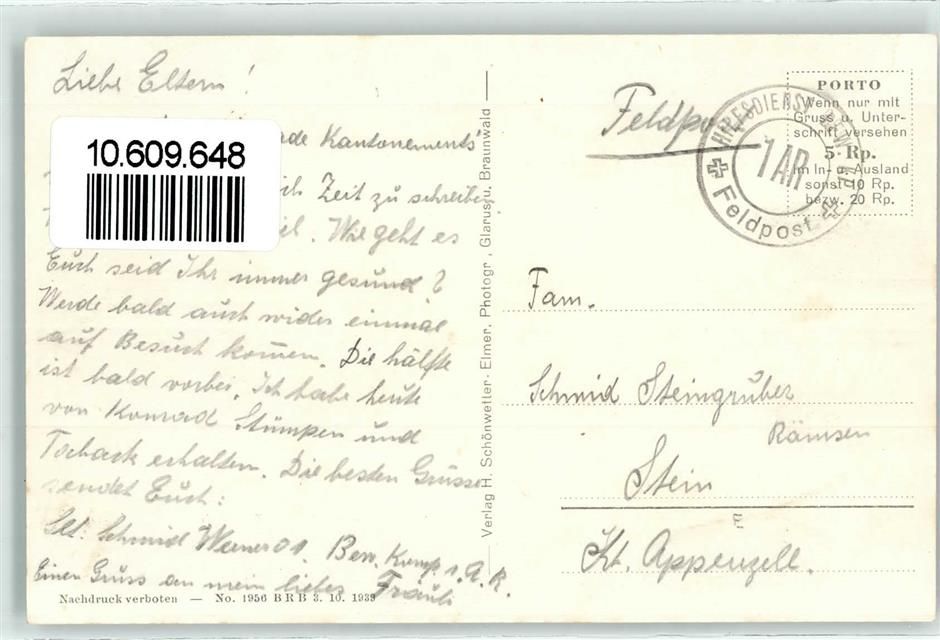 Liebe Eltern!
10.609.648
Kantonements
Zeit zu schreiben
. Wie geht es
Euch seid Ihr immer gesund?
Werde bald auch wider einmal
auf Besuch komen. Die hälfte
ist bald vorbei. Ich habe heute
von Konrad Stümpen und
Toback erhalten. Die besten Grüsse
sendet Euch:
Schmid Werner Bew. Komp. 1. A. R.
Einen Gruss an mein liebes
Nachdruck verboten — No. 1956 BRB 3. 10. 1939
Verlag H. Schönwetter-Elmer, Photogr., Glarus u. Braunwald
Feldpost
HILFSDIENST BEW.
1 AR
Feldpost
PORTO
Wenn nur mit
Gruss u. Unter-
schrift versehen
5 Rp.
im In- u. Ausland
sonst 10 Rp.
bezw. 20 Rp.
Fam.
Schmid Steingruber
Rämsen
Stein
E
Kt. Appenzell.